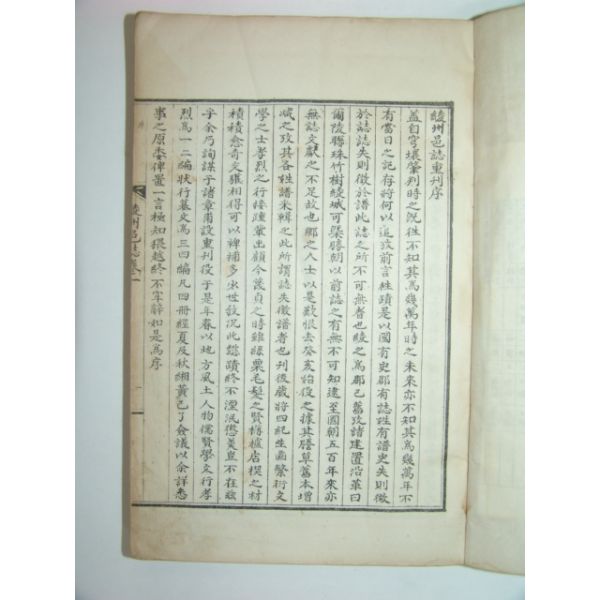 陵州邑誌重刊序
蓋自穹壤肇判時之旣往不知其爲幾萬年時之未來亦不知其爲幾萬年不
有當日之記存將何以追攷前言往蹟是以國有史郡有誌姓有譜史失則徵
於誌誌失則徵於譜此誌之所不可無者也綾之爲郡已舊攷諸建置沿革曰
爾陵聯珠竹樹綾城可槩勝朝以前誌之有無不可知逮至國朝五百年來亦
無誌文獻之不足故也鄕之人士以是歎恨去癸亥始役之據其謄草舊本增
减之攷其各姓譜來輯之此所謂誌失徵譜者也刊後歲將四紀生齒繁衍文
學之士孝烈之行接踵輩出顧今蔑貞之時雖縷粟毛髮之賢樽櫨店楔之材
積積愈奇文獻相得可以裨補多出世敎況此懿蹟終不湮泯懋美豈不在玆
乎余乃詢謀于諸章甫設重刊役于是年春以地方風土人物儒賢學文行孝
烈爲一二編狀行墓文爲三四編凡四冊經夏及秋緗黃已了僉議以余詳悉
事之原委俾置一言極知猥越終不牢辭如是爲序
陵州邑誌卷一